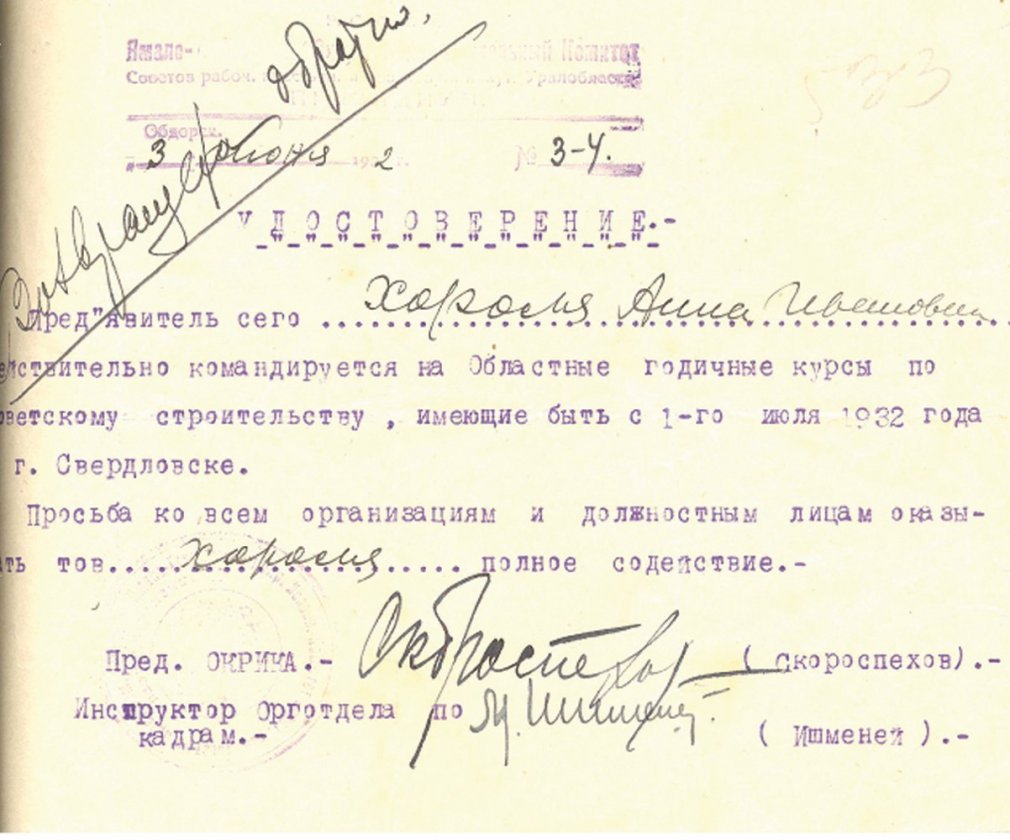 Ямало-
тельный Комитет
Советов рабоч.
Уралобласти
Обдорск.
3 июня 1932 г. № 3-4.
Возвращ
обратно.
УДОСТОВЕРЕНИЕ.-
Пред"явитель сего ... Хороля Анна Ивановна
йствительно командируется на Областные годичные курсы по
оветскому строительству , имеющие быть с 1-го июля 1932 года
г. Свердловске.
Просьба ко всем организациям и должностным лицам оказы-
ать тов.... Хороля ..... полное содействие.-
Пред. ОКРИКА.- Скороспехов ( Скороспехов).-
Инструктор Орготдела по
кадрам.- ( Ишменей ).-